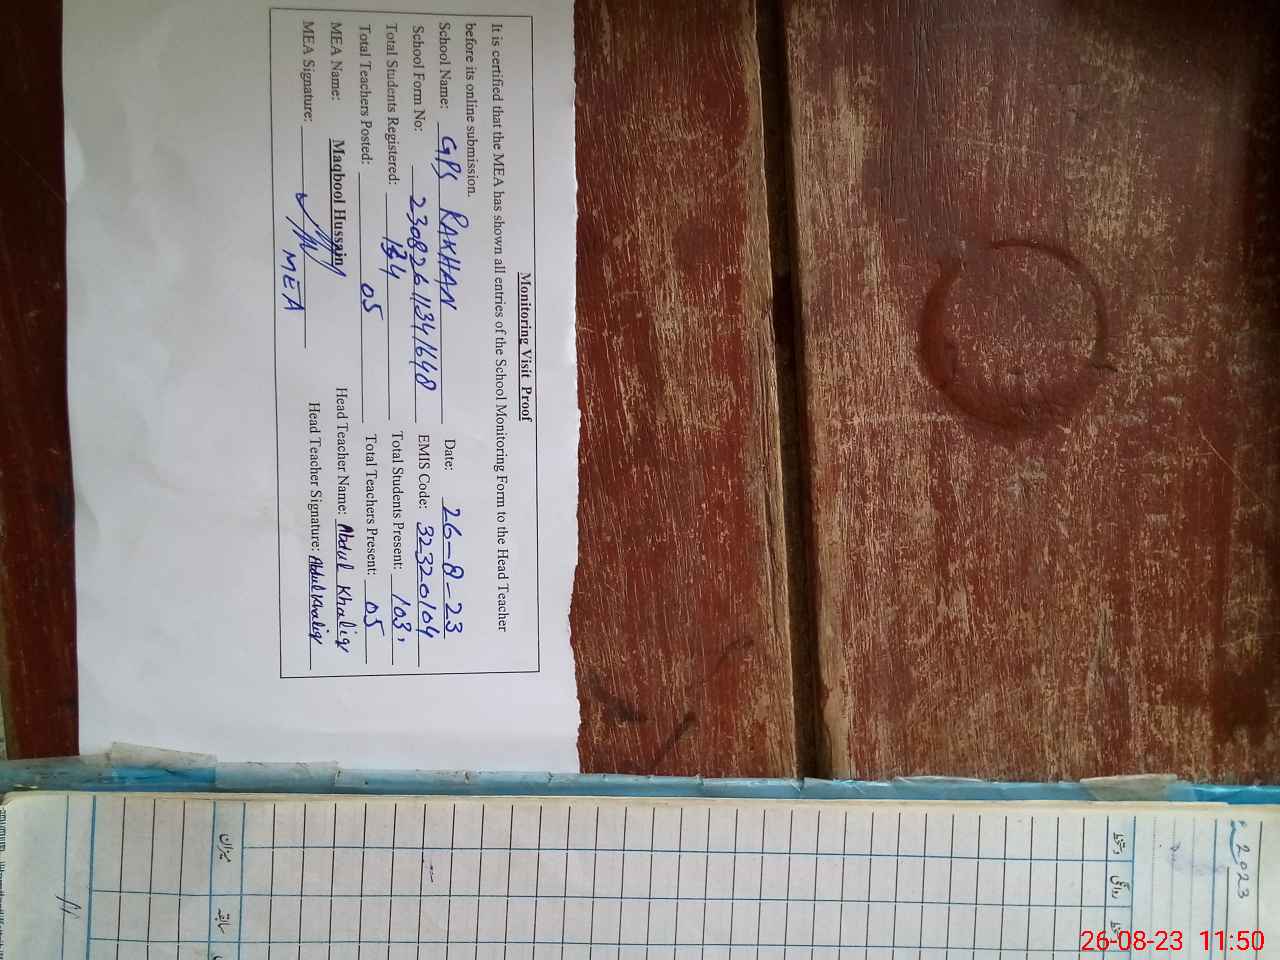 Monitoring Visit Proof
It is certified that the MEA has shown all entries of the School Monitoring Form to the Head Teacher
before its online submission.
School Name: GPS RAKHAN Date: 26-8-23
School Form No: 23082611341648 EMIS Code: 32320104
Total Students Registered: 134 Total Students Present: 103
Total Teachers Posted: 05 Total Teachers Present: 05
MEA Name: Maqbool Hussain Head Teacher Name: Abdul Khaliq
MEA Signature: MEA Head Teacher Signature: Abdul Khaliq
2023
دستخط
روانگی
میزان
سابقہ
26-08-23 11:50